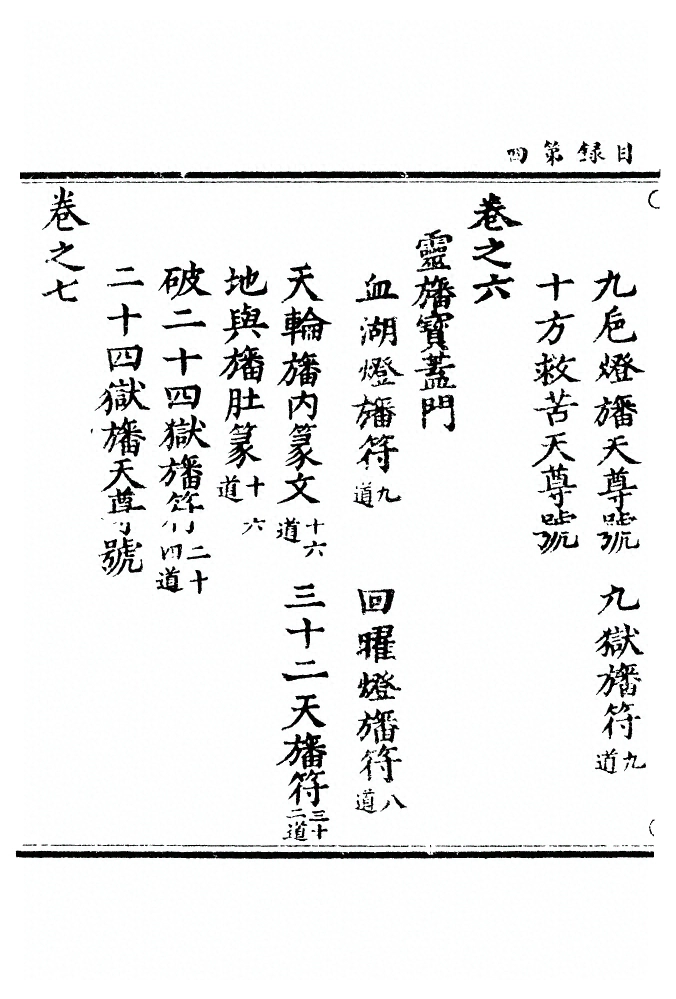 目錄第四
九巵燈旛天尊號　九獄旛符九道
十方救苦天尊號
卷之六
靈旛寶蓋門
血湖燈旛符九道　回曜燈旛符八道
天輪旛內篆文十六道　三十二天旛符三十二道
地與旛肚篆十六道
破二十四獄旛符二十四道
二十四獄旛天尊號
卷之七